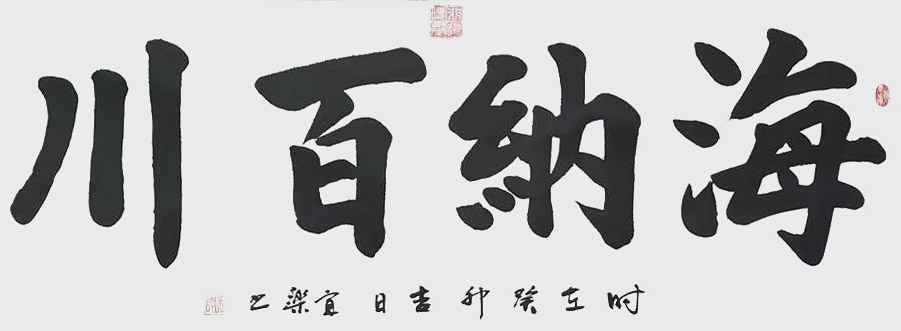 海納百川
时在癸卯吉日宜樂之